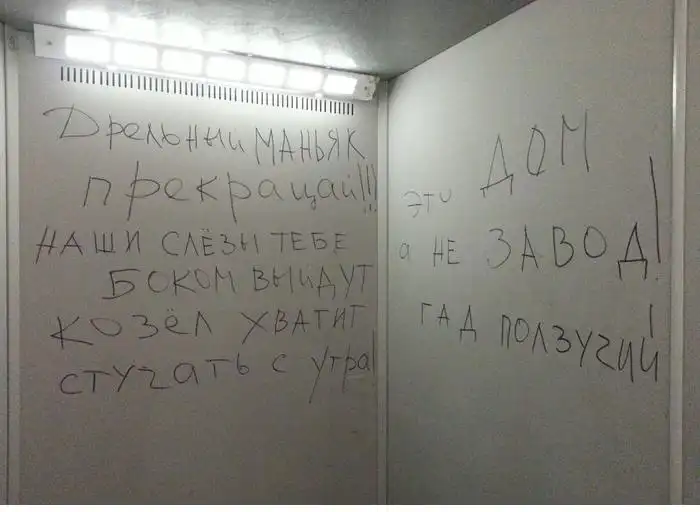 Дрельный МАНЬЯК
прекращай!!!
НАШИ СЛЁЗЫ ТЕБЕ
БОКОМ ВЫЙДУТ
КОЗЁЛ ХВАТИТ
СТУЧАТЬ С УТРА
ЭТО ДОМ
а НЕ ЗАВОД!
ГАД ПОЛЗУЧИЙ